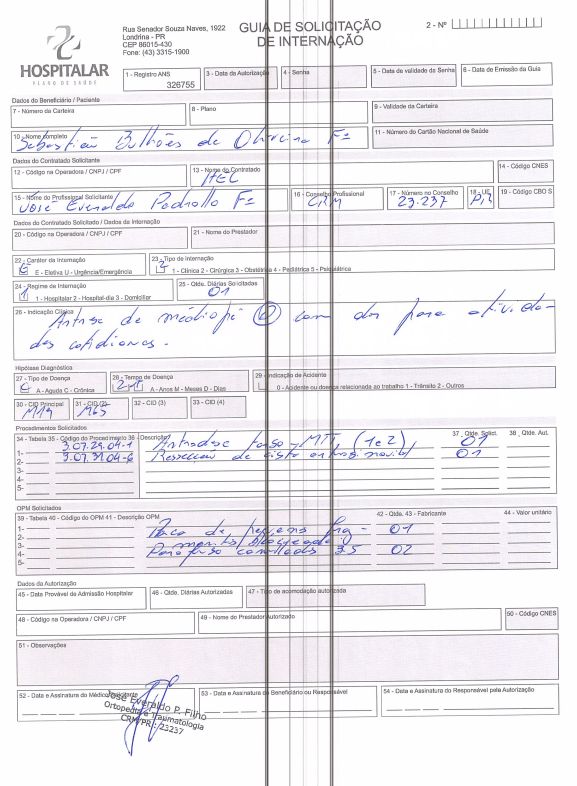 HOSPITALAR
PLANO DE SAÚDE
Rua Senador Souza Naves, 1922
Londrina - PR
CEP 86015-430
Fone: (43) 3315-1900
GUIA DE SOLICITAÇÃO
DE INTERNAÇÃO
2 - Nº
1 - Registro ANS
326755
3 - Data da Autorização
4 - Senha
5 - Data de validade da Senha
6 - Data de Emissão da Guia
Dados do Beneficiário / Paciente
7 - Número da Carteira
8 - Plano
9 - Validade da Carteira
10 - Nome Completo
Sebastião Bulhões de Oliveira Fº
11 - Número do Cartão Nacional de Saúde
Dados do Contratado Solicitante
12 - Código na Operadora / CNPJ / CPF
13 - Nome do Contratado
HEL
14 - Código CNES
15 - Nome do Profissional Solicitante
José Everaldo Pedrollo Fº
16 - Conselho Profissional
CRM
17 - Número no Conselho
23.237
18 - UF
PR
19 - Código CBO S
Dados do Contratado Solicitado / Dados da Internação
20 - Código na Operadora / CNPJ / CPF
21 - Nome do Prestador
22 - Caráter da Internação
E
E - Eletiva U - Urgência/Emergência
23 - Tipo de Internação
2
1 - Clínica 2 - Cirúrgica 3 - Obstétrica 4 - Pediátrica 5 - Psiquiátrica
24 - Regime de Internação
1
1 - Hospitalar 2 - Hospital-dia 3 - Domiciliar
25 - Qtde. Diárias Solicitadas
01
26 - Indicação Clínica
Artrose de mediopé com dor para ativida-
des cotidianas.
Hipótese Diagnóstica
27 - Tipo de Doença
A - Aguda C - Crônica
28 - Tempo de Doença
A - Anos M - Meses D - Dias
29 - Indicação de Acidente
0 - Acidente ou doença relacionada ao trabalho 1 - Trânsito 2 - Outros
30 - CID Principal
M19
31 - CID (2)
32 - CID (3)
33 - CID (4)
Procedimentos Solicitados
34 - Tabela 35 - Código do Procedimento 36 - Descrição
37 - Qtde. Solict.
38 - Qtde. Aut.
1- 3.07.29.04-1 Artrodese tarso-MTT (1e2) 01
2- 3.07.31.04-6 Ressecção de cisto 01
3-
4-
5-
OPM Solicitados
39 - Tabela 40 - Código do OPM 41 - Descrição OPM
42 - Qtde. 43 - Fabricante
44 - Valor unitário
1- Placa de pequenos frag- 01
2- mentos bloqueada
3- Parafuso canulados 3.5 02
4-
5-
Dados da Autorização
45 - Data Provável de Admissão Hospitalar
46 - Qtde. Diárias Autorizadas
47 - Tipo de acomodação autorizada
48 - Código na Operadora / CNPJ / CPF
49 - Nome do Prestador Autorizado
50 - Código CNES
51 - Observações
52 - Data e Assinatura do Médico Solicitante
53 - Data e Assinatura do Beneficiário ou Responsável
54 - Data e Assinatura do Responsável pela Autorização
José Everaldo P. Filho
Ortopedia e Traumatologia
CRM/PR: 23237